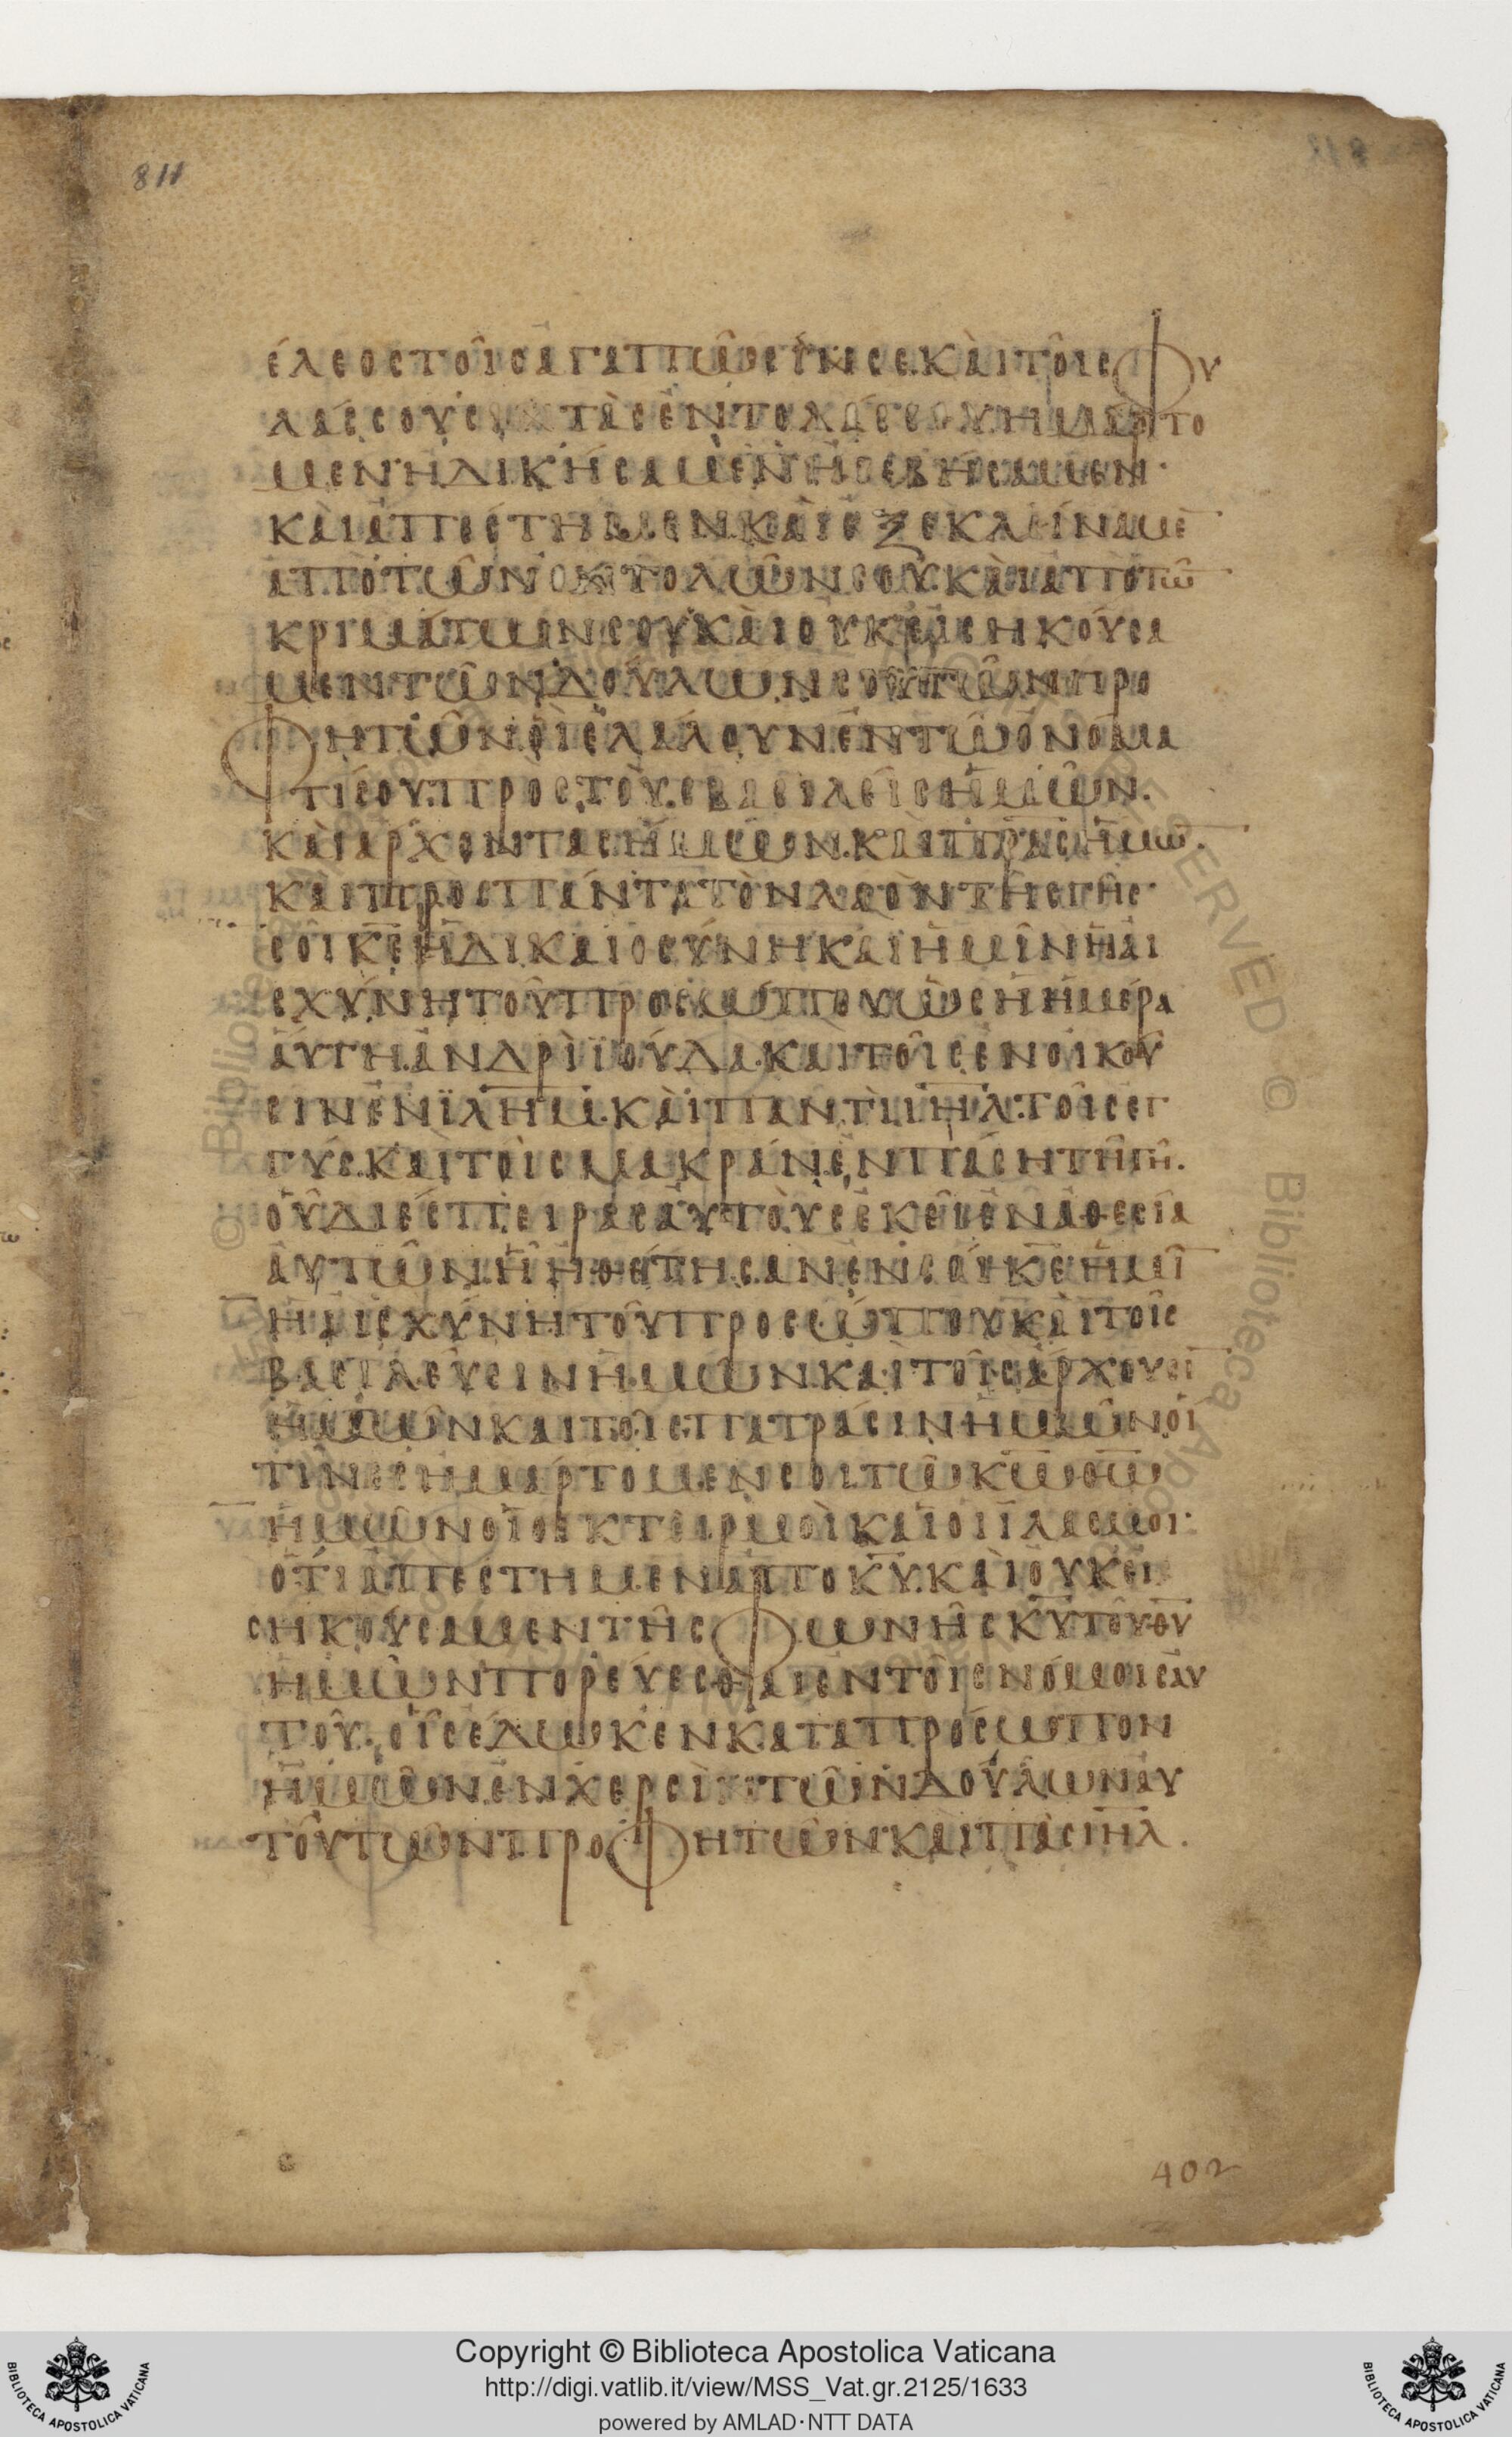 811
ἔλεος τοῖς ἀγαπῶσίν σε. καὶ τοῖς φυ
λάσσουσι τὰς ἐντολάς σου ἡμάρτο
μεν ἠδικήσαμεν ἠσεβήσαμεν·
καὶ ἀπέστημεν καὶ ἐξεκλείναμε̅
ἀπὸ τῶν ἐντολῶν σου. καὶ ἀπὸ τῶ̅
κριμάτων σου καὶ οὐκ εἰσηκούσα
μεν τῶν δούλων σου τῶν προ
φητῶν. οἳ ἐλάλουν ἐν τῷ ὀνόμα
τί σου. πρὸς τοὺς βασιλεῖς ἡμῶν.
καὶ ἄρχοντας ἡμῶν. καὶ π̅ρ̅α̅ς ἡμῶ̅.
καὶ προς πάντα τὸν λαὸν τῆς γῆς·
σοὶ κ̅ε̅ ἡ δικαιοσύνη καὶ ἡμῖν ἡ αι
σχύνη τοῦ προσώπου ὡς ἡ ἡμέρα
αὕτη. ἀνδρὶ ϊούδα. καὶ τοῖς ἐνοικοῦ
σιν ἐν ϊ̅λ̅η̅μ̅. καὶ παντὶ ι̅η̅λ̅. τοῖς ἐγ
γύς. καὶ τοῖς μακράν. ἐν πάσῃ τῇ γῇ.
οὗ διέσπειρας αὐτοὺς ἐκεῖ ἐν ἀθεσίᾳ
αὐτῶν. ᾗ ἠθέτησαν ἐν σοὶ κ̅ε̅ ἡμῖ̅
ἡ αἰσχύνη τοῦ προσώπου καὶ τοῖς
βασιλεῦσιν ἡμῶν καὶ τοῖς ἄρχουσῑ
ἡμῶν καὶ τοῖς πατράσιν ἡμῶν οἵ
τινες ἡμάρτομεν σοι. τῷ κ̅ω̅ θ̅ω̅
ἡμῶν οἱ οἰκτειρμοὶ καὶ οἱ ἱλασμοι·
ὅτι ἀπέστημεν ἀπο κ̅υ̅. καὶ οὐκ εἰ
σηκούσαμεν τῆς φωνῆς κ̅υ̅ τοῦ θ̅υ̅
ἡμῶν πορεύεσθαι ἐν τοῖς νόμοις αὐ
τοῦ. οἷς ἔδωκεν κατα πρόσωπον
ἡμῶν ἐν χερσὶ τῶν δούλων αὐ
τοῦ τῶν προφητῶν. καὶ πᾶς ι̅η̅λ̅.
402
© Biblioteca Apostolica Vaticana
Copyright © Biblioteca Apostolica Vaticana
http://digi.vatlib.it/view/MSS_Vat.gr.2125/1633
powered by AMLAD·NTT DATA
BIBLIOTECA APOSTOLICA VATICANA
BIBLIOTECA APOSTOLICA VATICANA